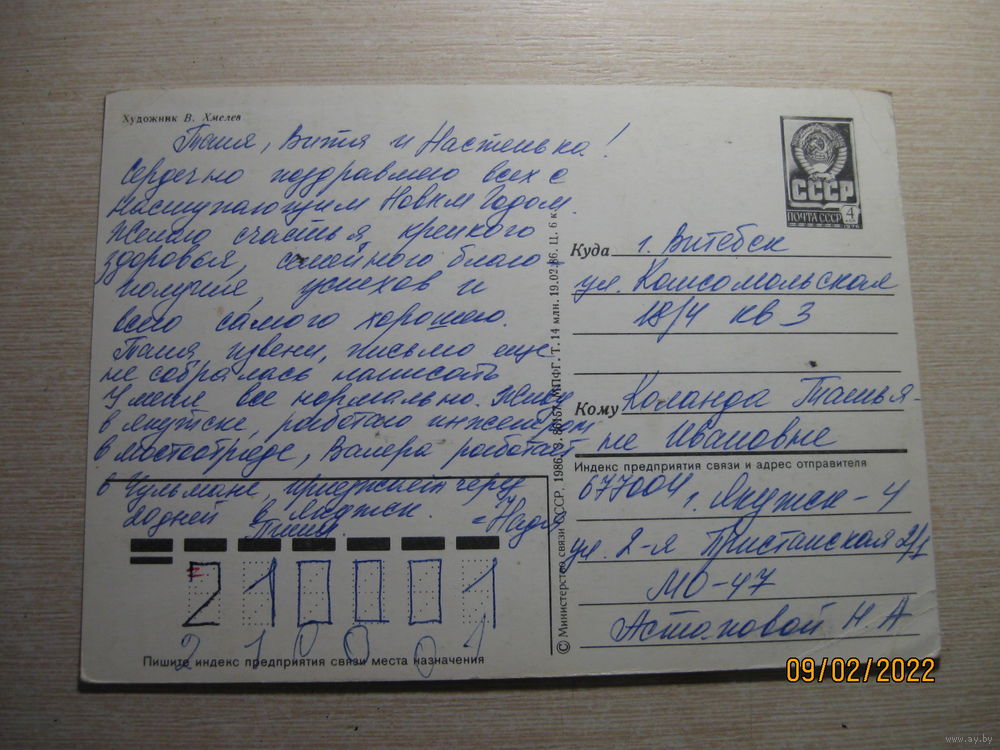 Художник В. Хмелев
Таня, Витя и Настенька!
Сердечно поздравляю всех с
наступающим Новым Годом.
Желаю счастья, крепкого
здоровья, семейного благо-
получия, успехов и
всего самого хорошего.
Таня извени, письмо еще
не собралась написать
У меня все нормально. Живу
в Якутске, работаю инженером
в Мостоотряде, Валера работает
в Чульмане, приезжает через
20 дней в Якутск.
Пиши. =Надя
210001
210001
Пишите индекс предприятия связи места назначения
© Министерство связи СССР, 1986. З. 86157. МПФГ. Т. 14 млн. 19.02.86. Ц. 6 к.
СССР
ПОЧТА СССР 4
1976
Куда г. Витебск
ул. Комсомольская
18/4 кв 3
Кому Коланда Татья-
не Ивановне
Индекс предприятия связи и адрес отправителя
677004 г. Якутск-4
ул. 2-я Пристанская 2/1
МО-47
Астаповой Н. А
09/02/2022
www.ay.by